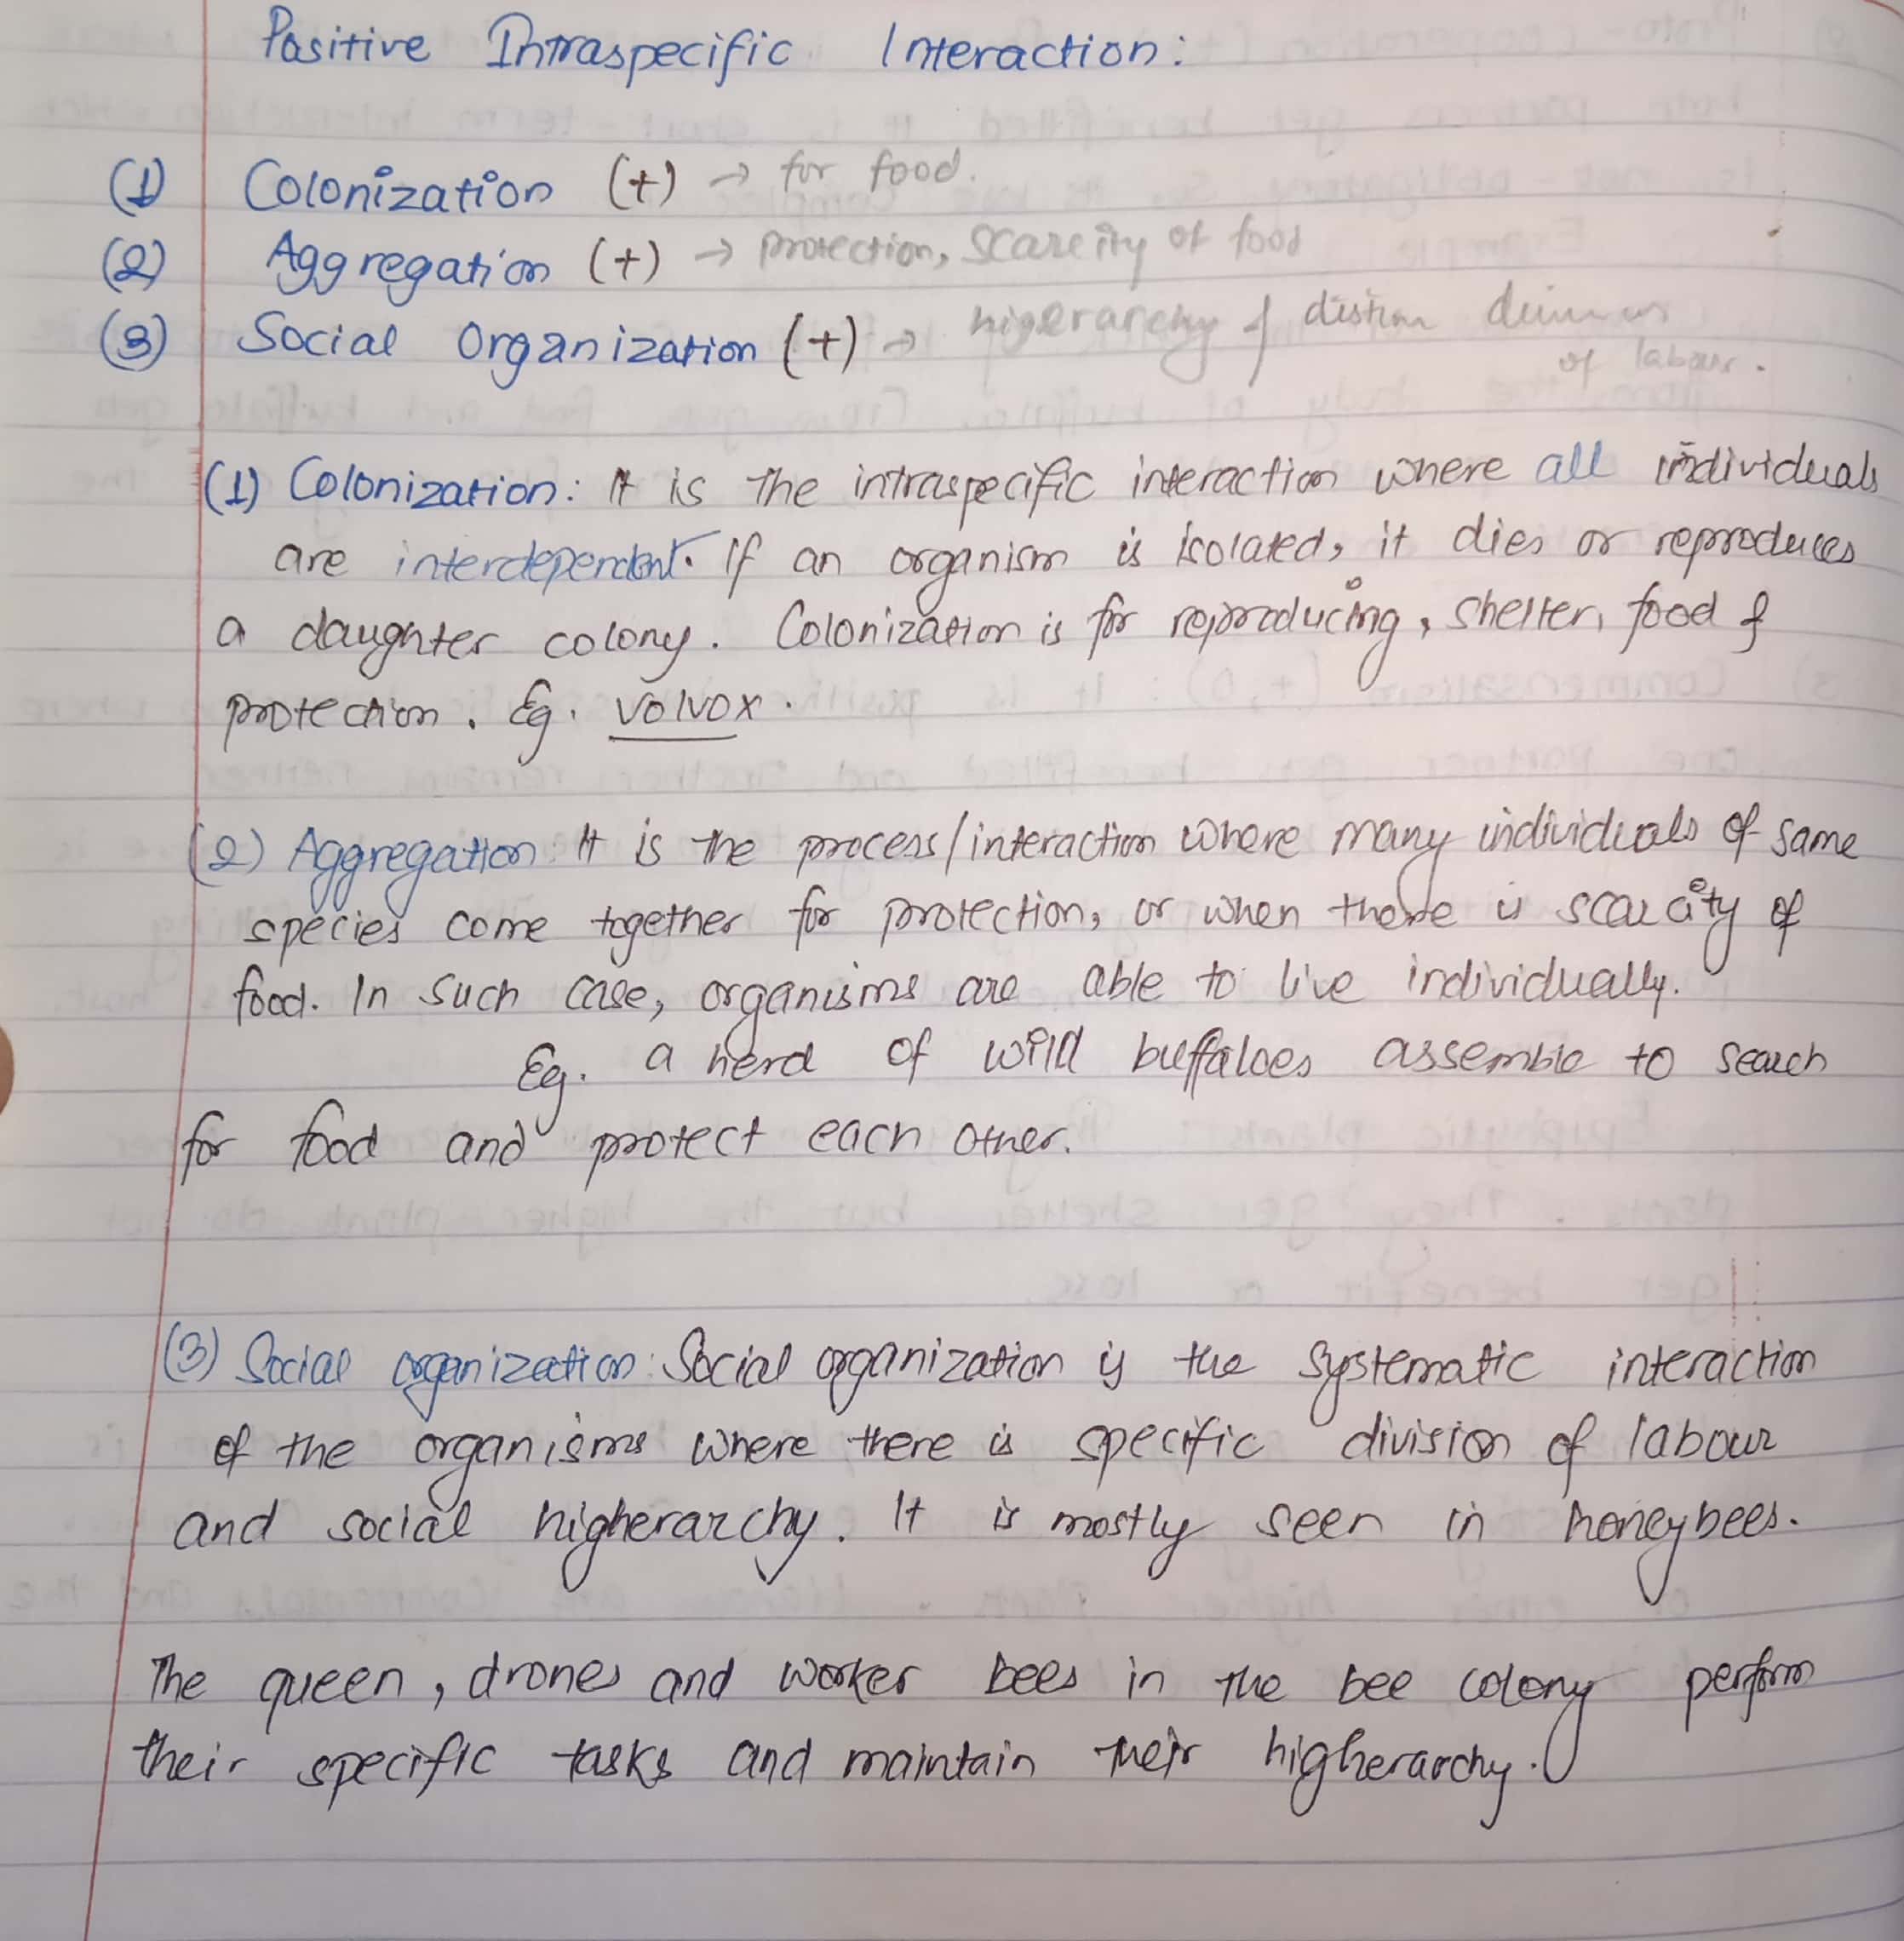 Positive Intraspecific Interaction:
(1) Colonization (+) → for food.
(2) Aggregation (+) → protection, scarcity of food
(3) Social Organization (+) → higerarchy & of labour.
(1) Colonization: It is the intraspecific interaction where all individuals
are interdependent. If an organism is isolated, it dies or reproduces
a daughter colony. Colonization is for reproducing, shelter, food &
protection. Eg. volvox.
(2) Aggregation: It is the process/interaction where many individuals of same
species come together for protection, or when there is scarcity of
food. In such case, organisms are able to live individually.
Eg. a herd of wild buffaloes assemble to search
for food and protect each other.
(3) Social organization: Social organization is the systematic interaction
of the organisms where there is specific division of labour
and social higherarchy. It is mostly seen in honeybees.
The queen, drones and worker bees in the bee colony perform
their specific tasks and maintain their higherarchy.